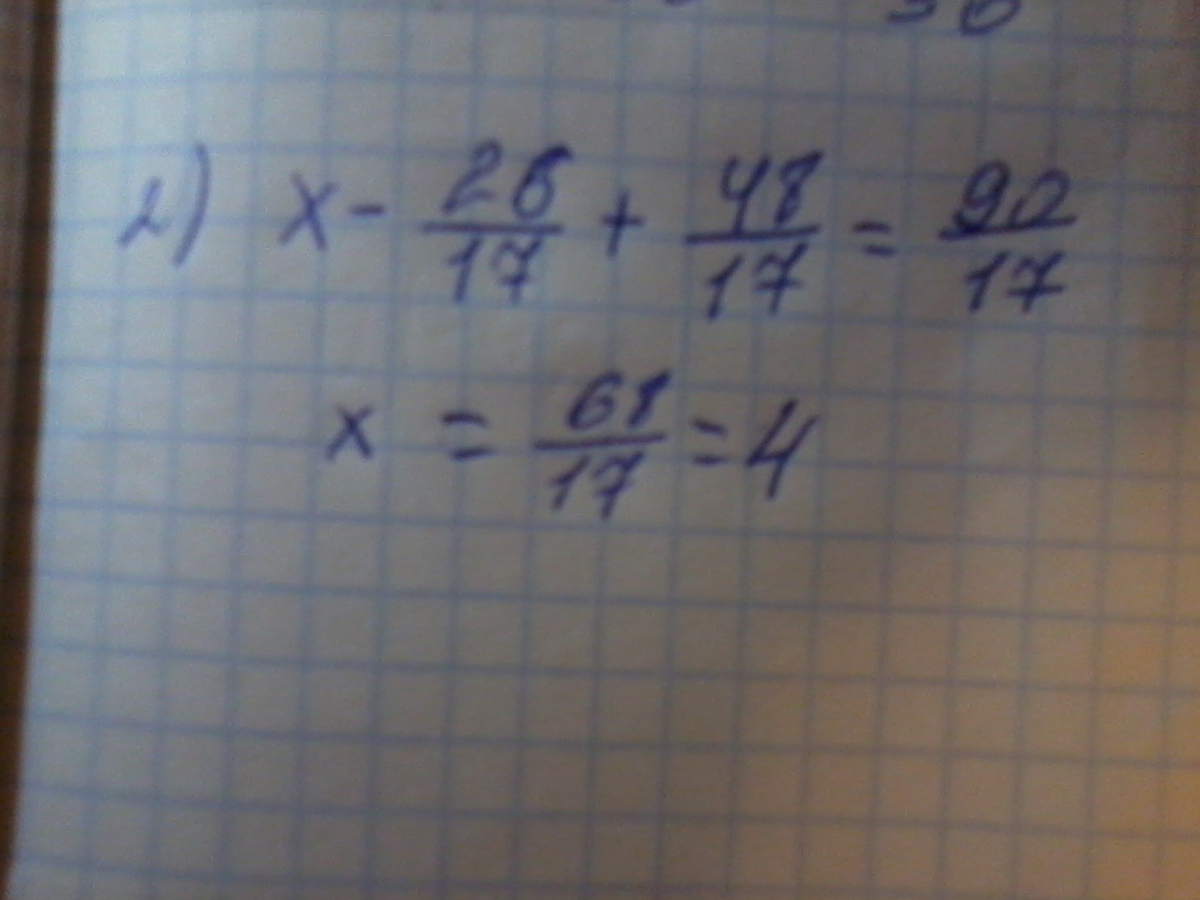 2) x - 26/17 + 48/17 = 90/17
x = 68/17 = 4